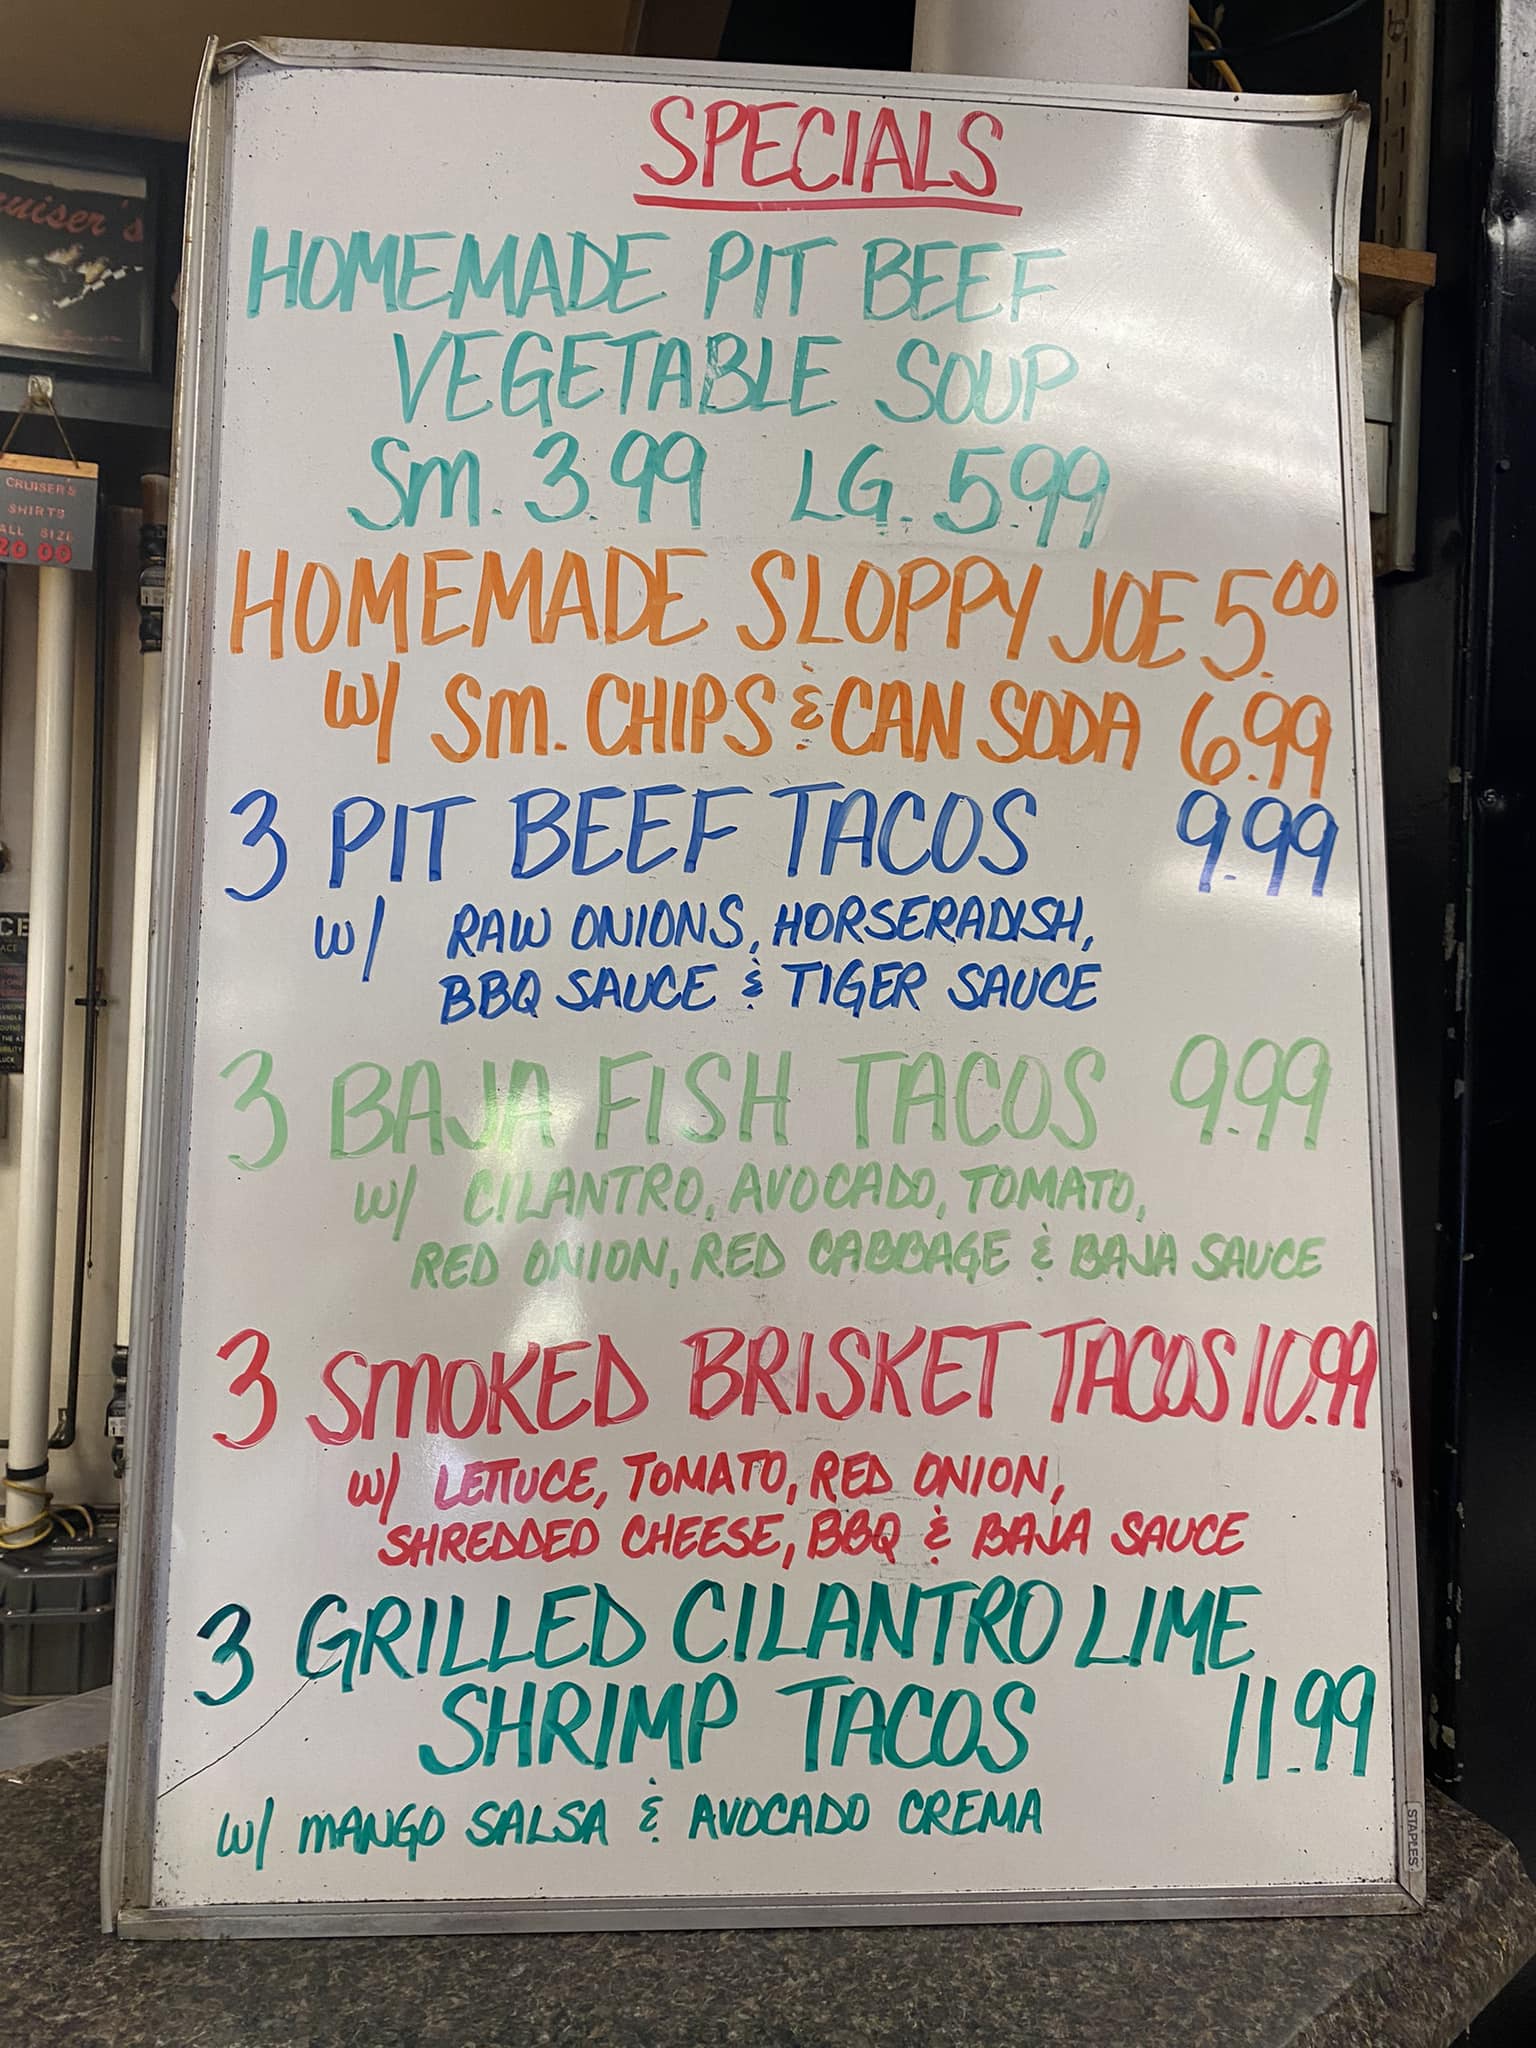 SPECIALS
HOMEMADE PIT BEEF
VEGETABLE SOUP
Sm. 3.99 LG. 5.99
HOMEMADE SLOPPY JOE 5.00
w/ Sm. CHIPS & CAN SODA 6.99
3 PIT BEEF TACOS 9.99
w/ RAW ONIONS, HORSERADISH,
BBQ SAUCE & TIGER SAUCE
3 BAJA FISH TACOS 9.99
w/ CILANTRO, AVOCADO, TOMATO,
RED ONION, RED CABBAGE & BAJA SAUCE
3 SMOKED BRISKET TACOS 10.99
w/ LETTUCE, TOMATO, RED ONION,
SHREDDED CHEESE, BBQ & BAJA SAUCE
3 GRILLED CILANTRO LIME
SHRIMP TACOS 11.99
w/ MANGO SALSA & AVOCADO CREMA
STAPLES
uiser's
CRUISER'S
SHIRTS
ALL SIZE
20 00